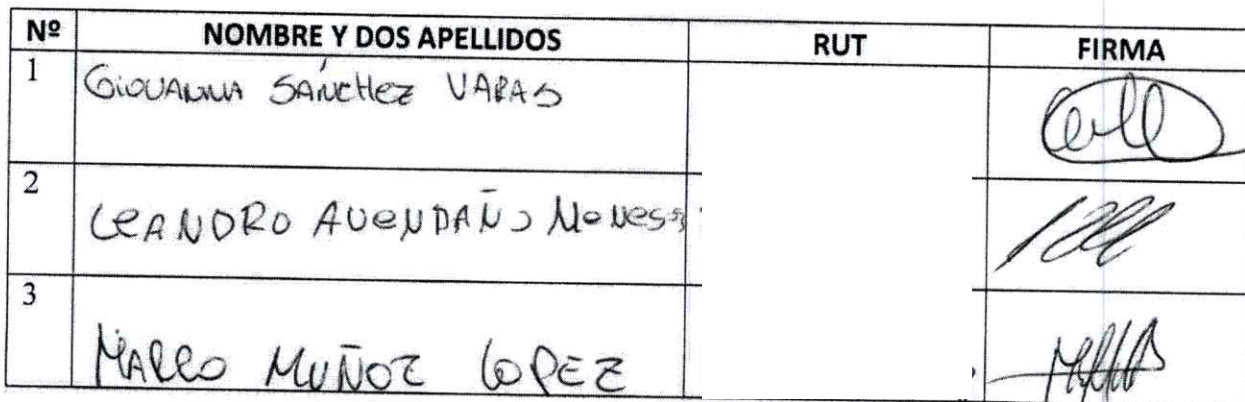 Nº NOMBRE Y DOS APELLIDOS RUT FIRMA
1 GIOVANNA SÁNCHEZ VARAS
2 LEANDRO AVENDAÑO
3 MARCO MUÑOZ LOPEZ